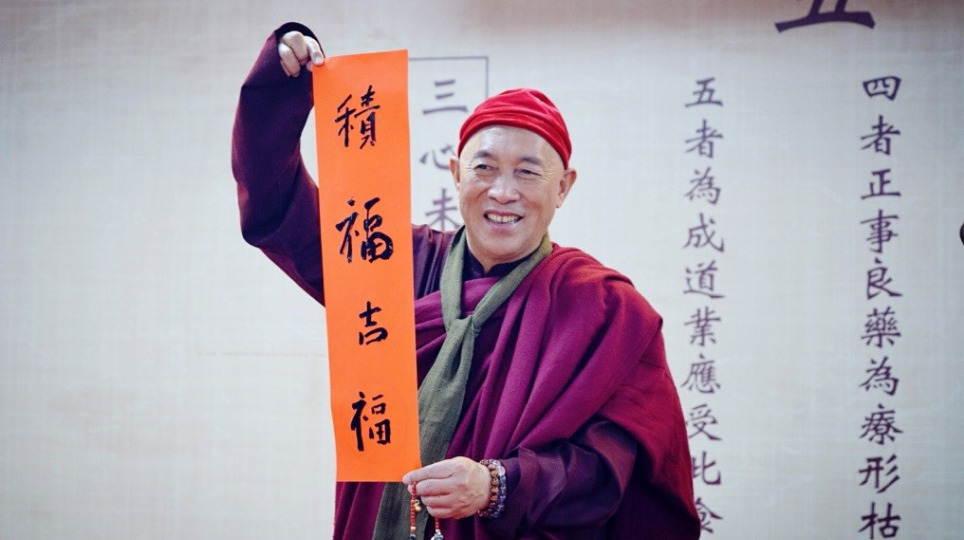 四者正事良藥為療形枯
五者為成道業應受此食
三心未
積福吉福